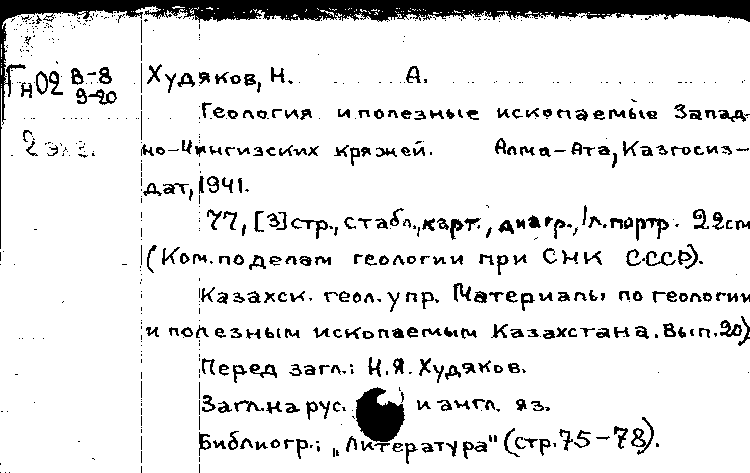 Гн02 В-8
9-20
2 экз.
Худяков, Н. А.
Геология и полезные ископаемые Запад-
но-Чингизских кряжей. Алма-Ата, Казгосиз-
дат, 1941.
77, [3] стр., с табл., карт., диагр., 1 л. портр. 22 см
(Ком. по делам геологии при СНК СССР).
Казахск. геол. упр. Материалы по геологии
и полезным ископаемым Казахстана. Вып. 20)
Перед загл.: Н. Я. Худяков.
Загл. на рус. и англ. яз.
Библиогр.: „Литература" (стр. 75-78).